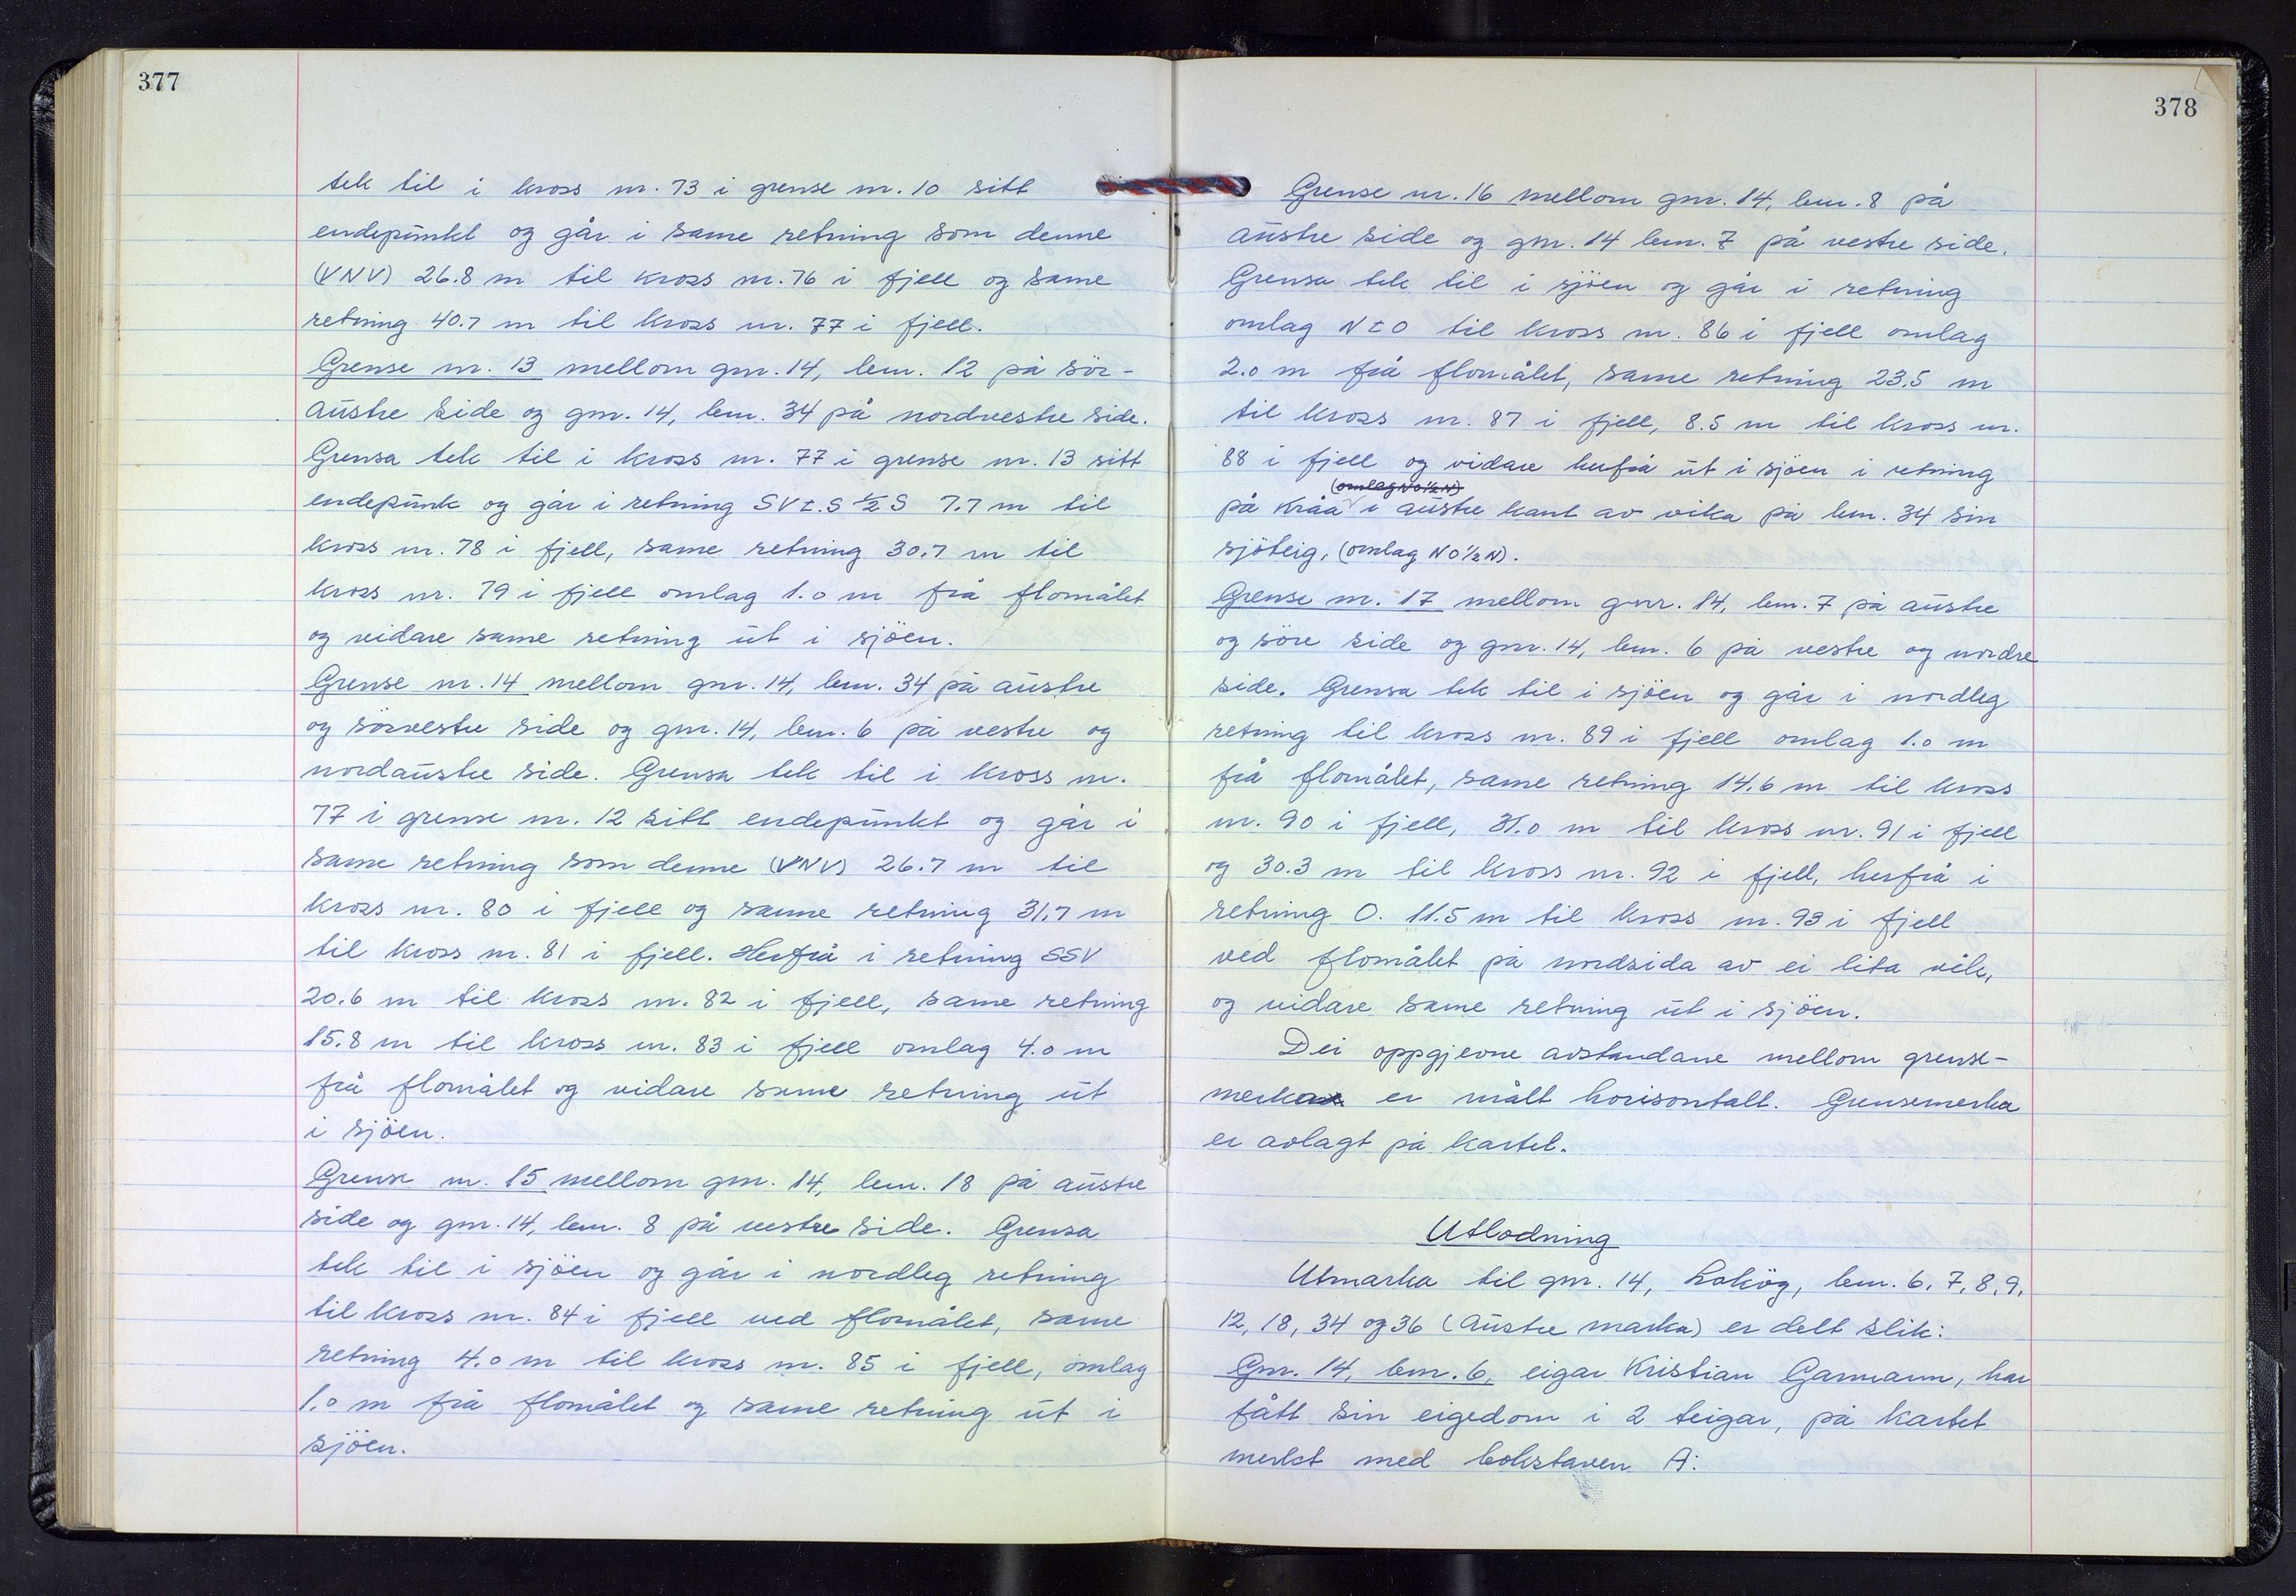 377
tek til i kross nr. 73 i grense nr. 10 sitt
endepunkt og går i same retning som denne
(VNV) 26.8 m til kross nr. 76 i fjell og same
retning 40.7 m til kross nr. 77 i fjell.
Grense nr. 13 mellom gnr. 14, bnr. 12 på sör-
austre side og gnr. 14, bnr. 34 på nordvestre side.
Grensa tek til i kross nr. 77 i grense nr. 13 sitt
endepunk og går i retning SVt.S ½ S 7.7 m til
kross nr. 78 i fjell, same retning 30.7 m til
kross nr. 79 i fjell omlag 1.0 m frå flomålet
og vidare same retning ut i sjöen.
Grense nr. 14 mellom gnr. 14, bnr. 34 på austre
og sörvestre side og gnr. 14, bnr. 6 på vestre og
nordaustre side. Grensa tek til i kross nr.
77 i grense nr. 12 sitt endepunkt og går i
same retning som denne (VNV) 26.7 m til
kross nr. 80 i fjell og same retning 31.7 m
til kross nr. 81 i fjell. Herfrå i retning SSV
20.6 m til kross nr. 82 i fjell, same retning
15.8 m til kross nr. 83 i fjell omlag 4.0 m
frå flomålet og vidare same retning ut
i sjöen.
Grense nr. 15 mellom gnr. 14, bnr. 18 på austre
side og gnr. 14, bnr. 8 på vestre side. Grensa
tek til i sjöen og går i nordleg retning
til kross nr. 84 i fjell ved flomålet, same
retning 4.0 m til kross nr. 85 i fjell, omlag
1.0 m frå flomålet og same retning ut i
sjöen.
378
Grense nr. 16 mellom gnr. 14, bnr. 8 på
austre side og gnr. 14 bnr. 7 på vestre side.
Grensa tek til i sjöen og går i retning
omlag NtO til kross nr. 86 i fjell omlag
2.0 m frå flomålet, same retning 23.5 m
til kross nr. 87 i fjell, 8.5 m til kross nr.
88 i fjell og vidare herfrå ut i sjöen i retning
(omlag NO½N)
på Kråa i austre kant av vika på bnr. 34 sin
sjöteig, (omlag NO½N).
Grense nr. 17 mellom gnr. 14, bnr. 7 på austre
og söre side og gnr. 14, bnr. 6 på vestre og nordre
side. Grensa tek til i sjöen og går i nordleg
retning til kross nr. 89 i fjell omlag 1.0 m
frå flomålet, same retning 14.6 m til kross
nr. 90 i fjell, 31.0 m til kross nr. 91 i fjell
og 30.3 m til kross nr. 92 i fjell, herfrå i
retning O. 11.5 m til kross nr. 93 i fjell
ved flomålet på nordsida av ei lita vik,
og vidare same retning ut i sjöen.
Dei oppgjevne avstandane mellom grense-
merka er målt horisontalt. Grensemerka
er avlagt på kartet.
Utlodning
Utmarka til gnr. 14, Loköy, bnr. 6, 7, 8, 9,
12, 18, 34 og 36 (Austre marka) er delt slik:
Gnr. 14, bnr. 6, eigar Kristian Garmann, har
fått sin eigedom i 2 teigar, på kartet
merkt med bokstaven A: